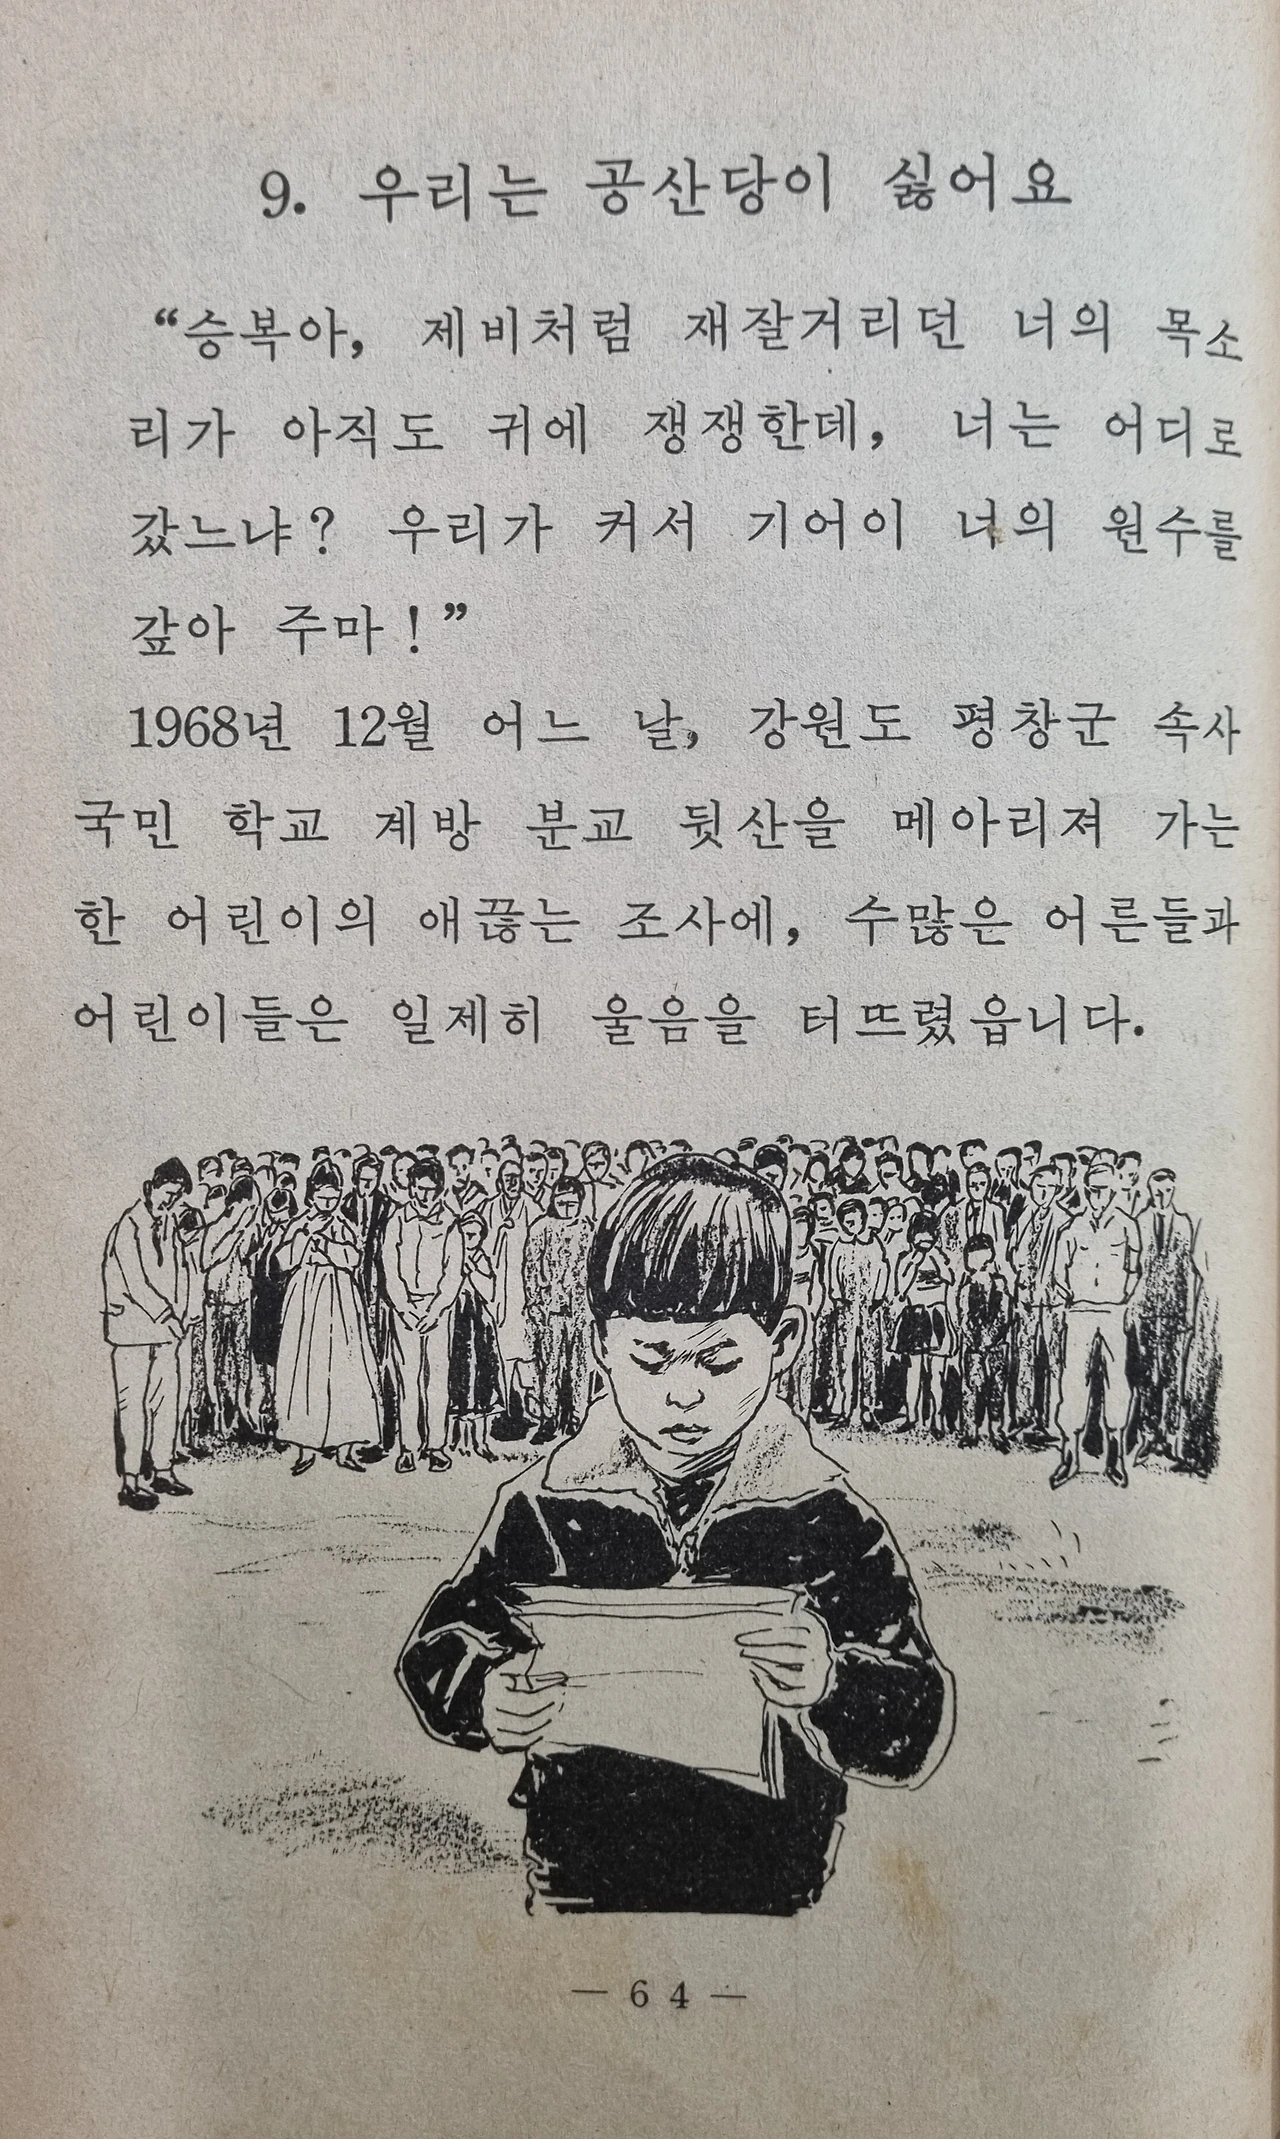 9. 우리는 공산당이 싫어요
“승복아, 제비처럼 재잘거리던 너의 목소
리가 아직도 귀에 쟁쟁한데, 너는 어디로
갔느냐? 우리가 커서 기어이 너의 원수를
갚아 주마!”
1968년 12월 어느 날, 강원도 평창군 속사
국민 학교 계방 분교 뒷산을 메아리져 가는
한 어린이의 애끊는 조사에, 수많은 어른들과
어린이들은 일제히 울음을 터뜨렸읍니다.
— 64 —